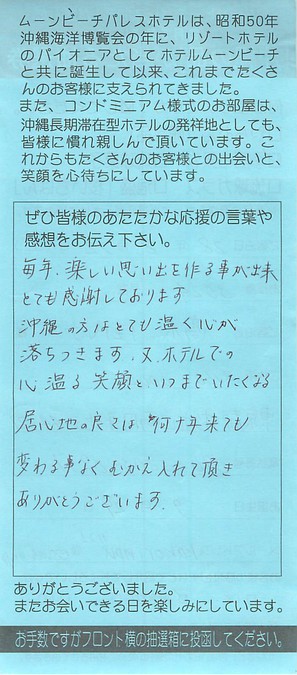 ムーンビーチパレスホテルは、昭和50年
沖縄海洋博覧会の年に、リゾートホテル
のパイオニアとしてホテルムーンビーチ
と共に誕生して以来、これまでたくさ
んのお客様に支えられてきました。
また、コンドミニアム様式のお部屋は、
沖縄長期滞在型ホテルの発祥地としても、
皆様に慣れ親しんで頂いています。こ
れからもたくさんのお客様との出会いと、
笑顔を心待ちにしています。
ぜひ皆様のあたたかな応援の言葉や
感想をお伝え下さい。
毎年、楽しい思い出を作る事が出来
とても感謝しております
沖縄の方はとても温く心が
落ちつきます。又、ホテルでの
心温る笑顔といつまでいたくなる
居心地の良さは 何十年来ても
変わる事なくむかえ入れて頂き
ありがとうございます.
ありがとうございました。
またお会いできる日を楽しみにしています。
お手数ですがフロント横の抽選箱に投函してください。